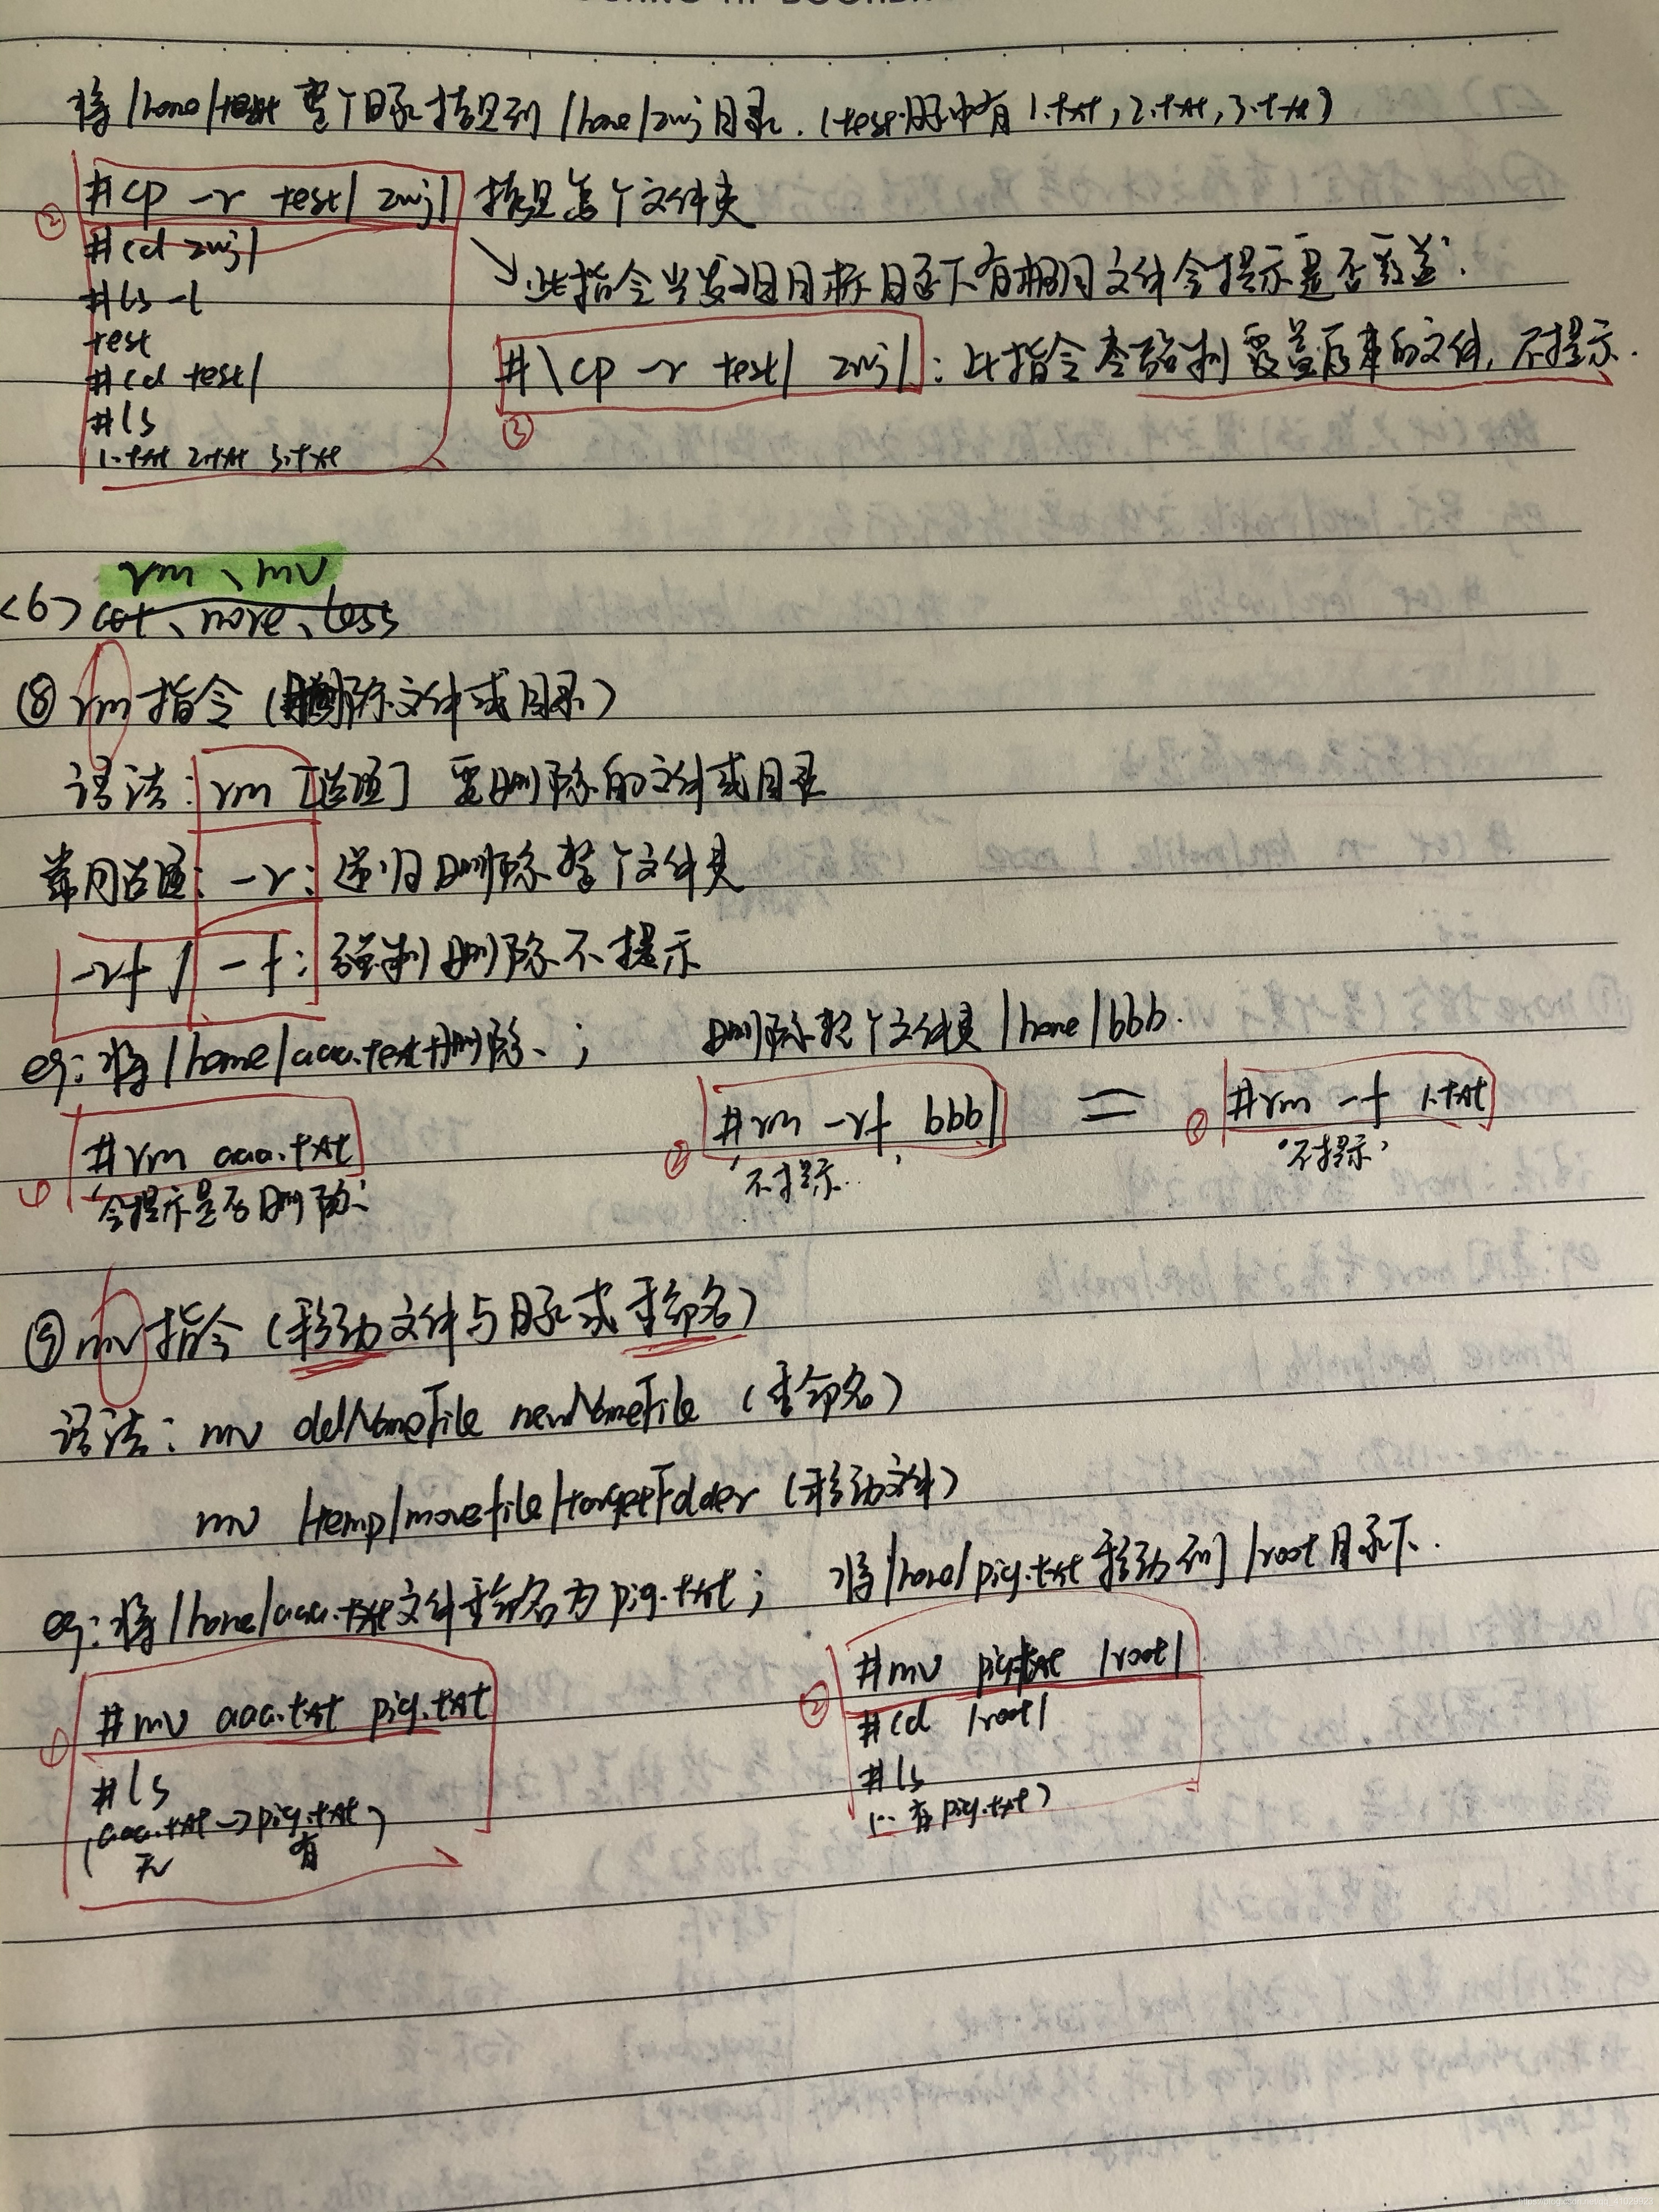 将/home/test 整个目录拷贝到 /home/zwj目录.(test目录中有 1.txt, 2.txt, 3.txt)
② #cp -r test/ zwj/ 拷贝整个文件夹
#cd zwj/
↘此指令当发现目标目录下有相同文件会提示是否覆盖.
#ls -l
test
③ #\cp -r test/ zwj/ : 此指令强制覆盖原来的文件, 不提示.
#cd test/
#ls
1.txt 2.txt 3.txt
rm、mv
<6> cat、more、less
⑧ rm 指令 (删除文件或目录)
语法: rm [选项] 要删除的文件或目录
常用选项: -r: 递归删除整个文件夹
-rf / -f: 强制删除不提示
eg: 将/home/aaa.text删除、; 删除整个文件夹/home/bbb.
① #rm aaa.txt ② #rm -rf bbb/ = ② #rm -f 1.txt
'会提示是否删除' '不提示' '不提示'
⑨ mv 指令 (移动文件与目录或重命名)
语法: mv oldNameFile newNameFile (重命名)
mv /temp/movefile/targetFolder (移动文件)
eg: 将/home/aaa.txt文件重命名为pig.txt; 将/home/pig.txt移动到/root目录下.
① #mv aaa.txt pig.txt ② #mv pig.txt /root/
#cd /root/
#ls #ls
(aaa.txt → pig.txt) (... 有pig.txt)
无 有